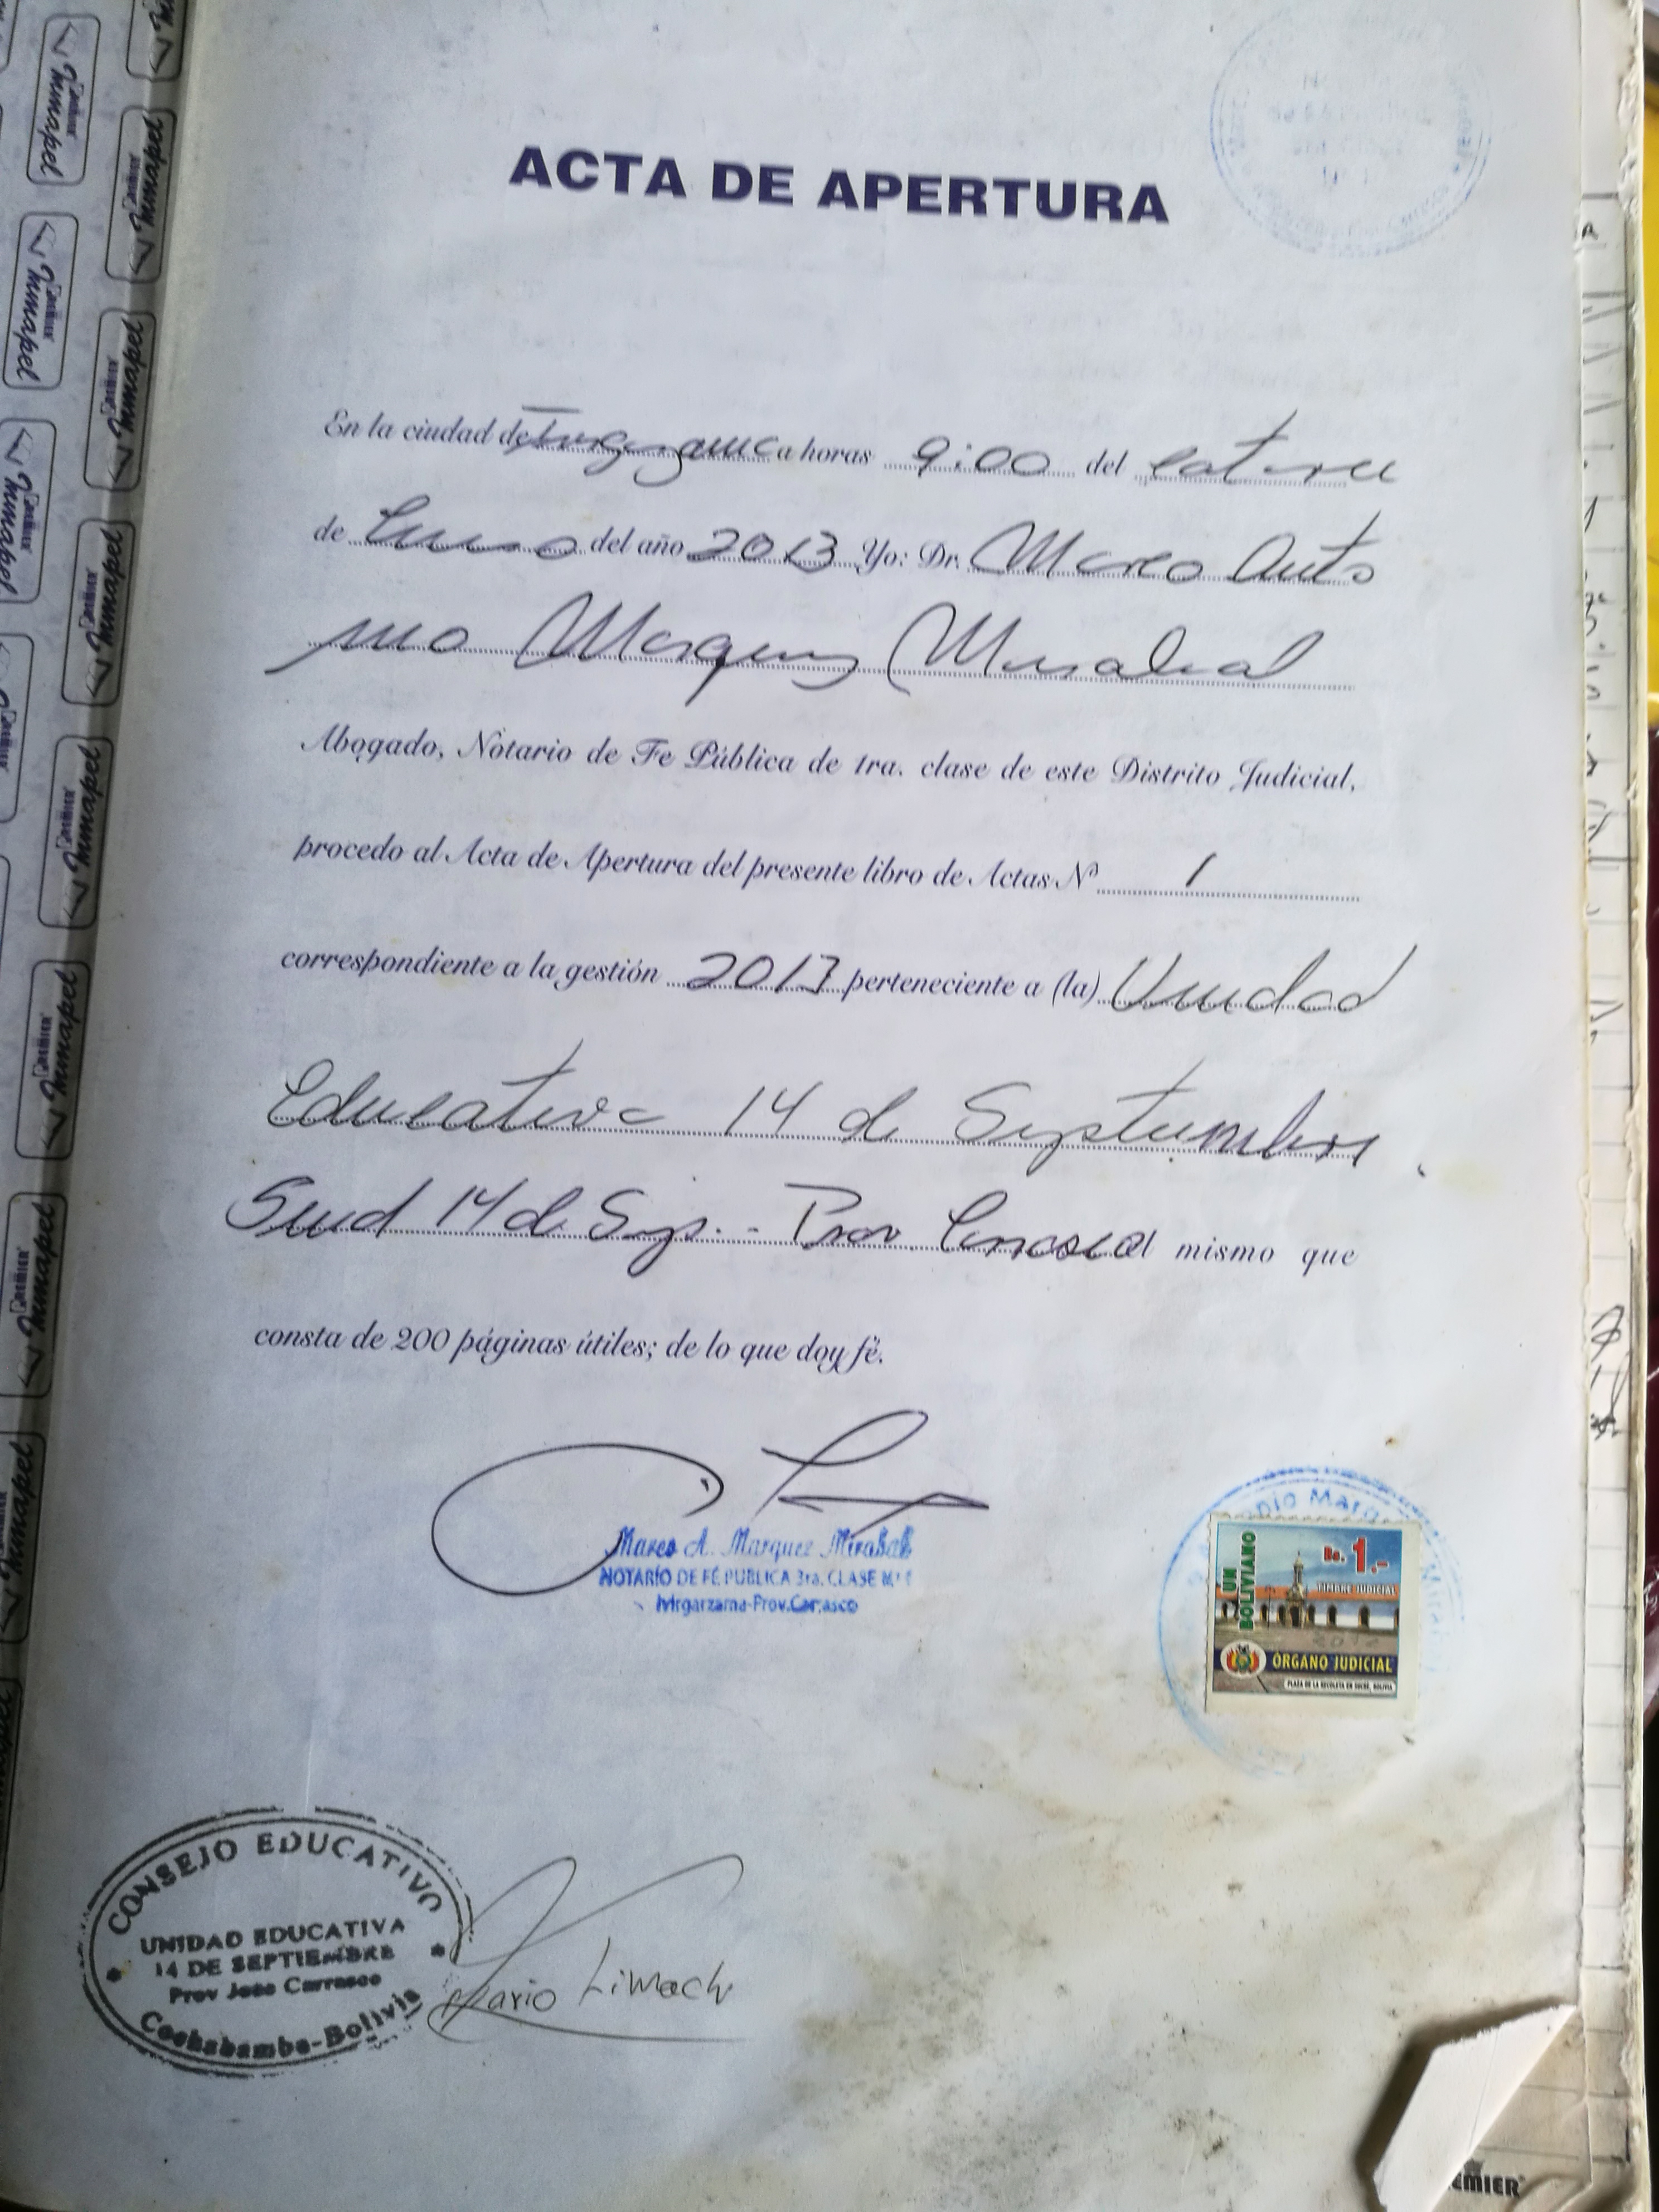 ACTA DE APERTURA
En la ciudad de Ivirgarzama a horas 9:00 del catorce
de Junio del año 2013 Yo: Dr. Marco Anto
nio Marquez Mirabal
Abogado, Notario de Fe Pública de 1ra. clase de este Distrito Judicial,
procedo al Acta de Apertura del presente libro de Actas Nº 1
correspondiente a la gestión 2013 perteneciente a (la) Unidad
Educativa 14 de Septiembre
Sind 14 de Sep. - Prov Carrasco el mismo que
consta de 200 páginas útiles; de lo que doy fé.
Marco A. Marquez Mirabal
NOTARÍO DE FÉ PUBLICA 3ra. CLASE Nº 1
Ivirgarzama-Prov.Carrasco
UN BOLIVIANO
Bs. 1.-
TIMBRE JUDICIAL
ÓRGANO JUDICIAL
PLAZA DE LA RECOLETA EN SUCRE, BOLIVIA
CONSEJO EDUCATIVO
UNIDAD EDUCATIVA
14 DE SEPTIEMBRE
Prov Jose Carrasco
Cochabamba-Bolivia
Mario Limachi
Inmapel